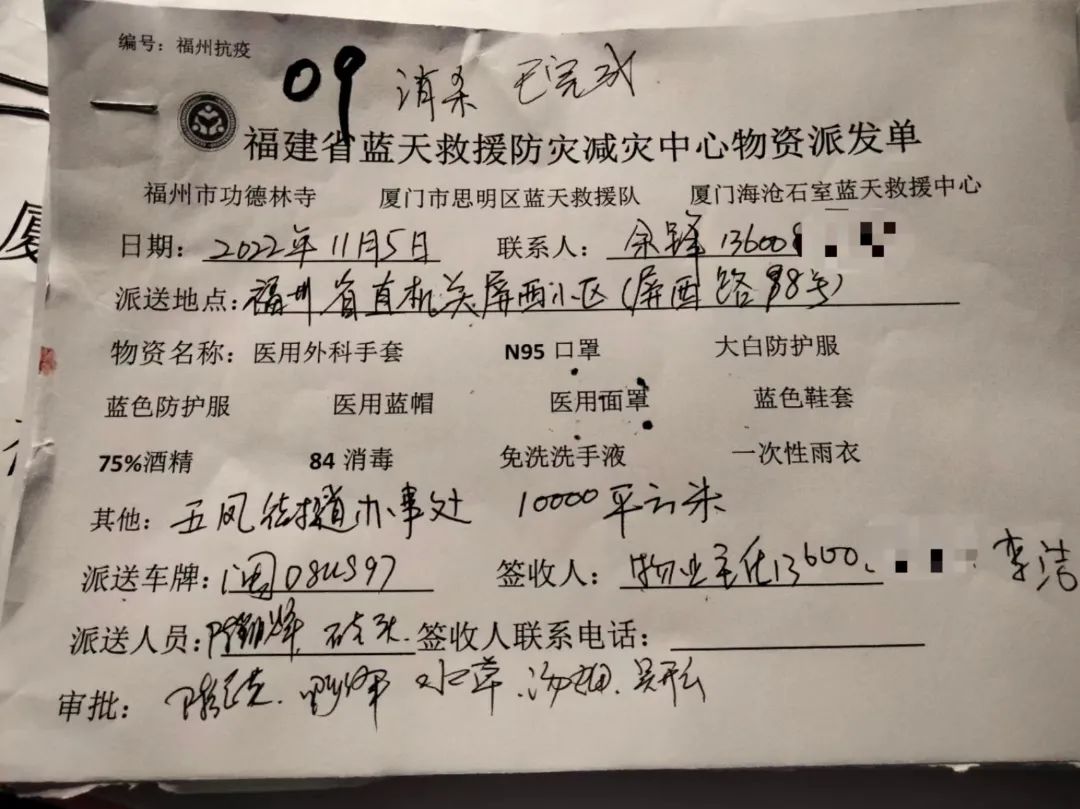 编号：福州抗疫
09 消杀 已完成
福建省蓝天救援防灾减灾中心物资派发单
福州市功德林寺 厦门市思明区蓝天救援队 厦门海沧石室蓝天救援中心
日期：2022年11月5日 联系人：余锋 13600
派送地点：福州省直机关屏西小区（屏西路98号）
物资名称：医用外科手套 N95 口罩 大白防护服
蓝色防护服 医用蓝帽 医用面罩 蓝色鞋套
75%酒精 84 消毒 免洗洗手液 一次性雨衣
其他：五凤街道办事处 10000平方米
派送车牌：闽 签收人：物业主任13600 李洁
派送人员： 签收人联系电话：
审批： 水草
厦